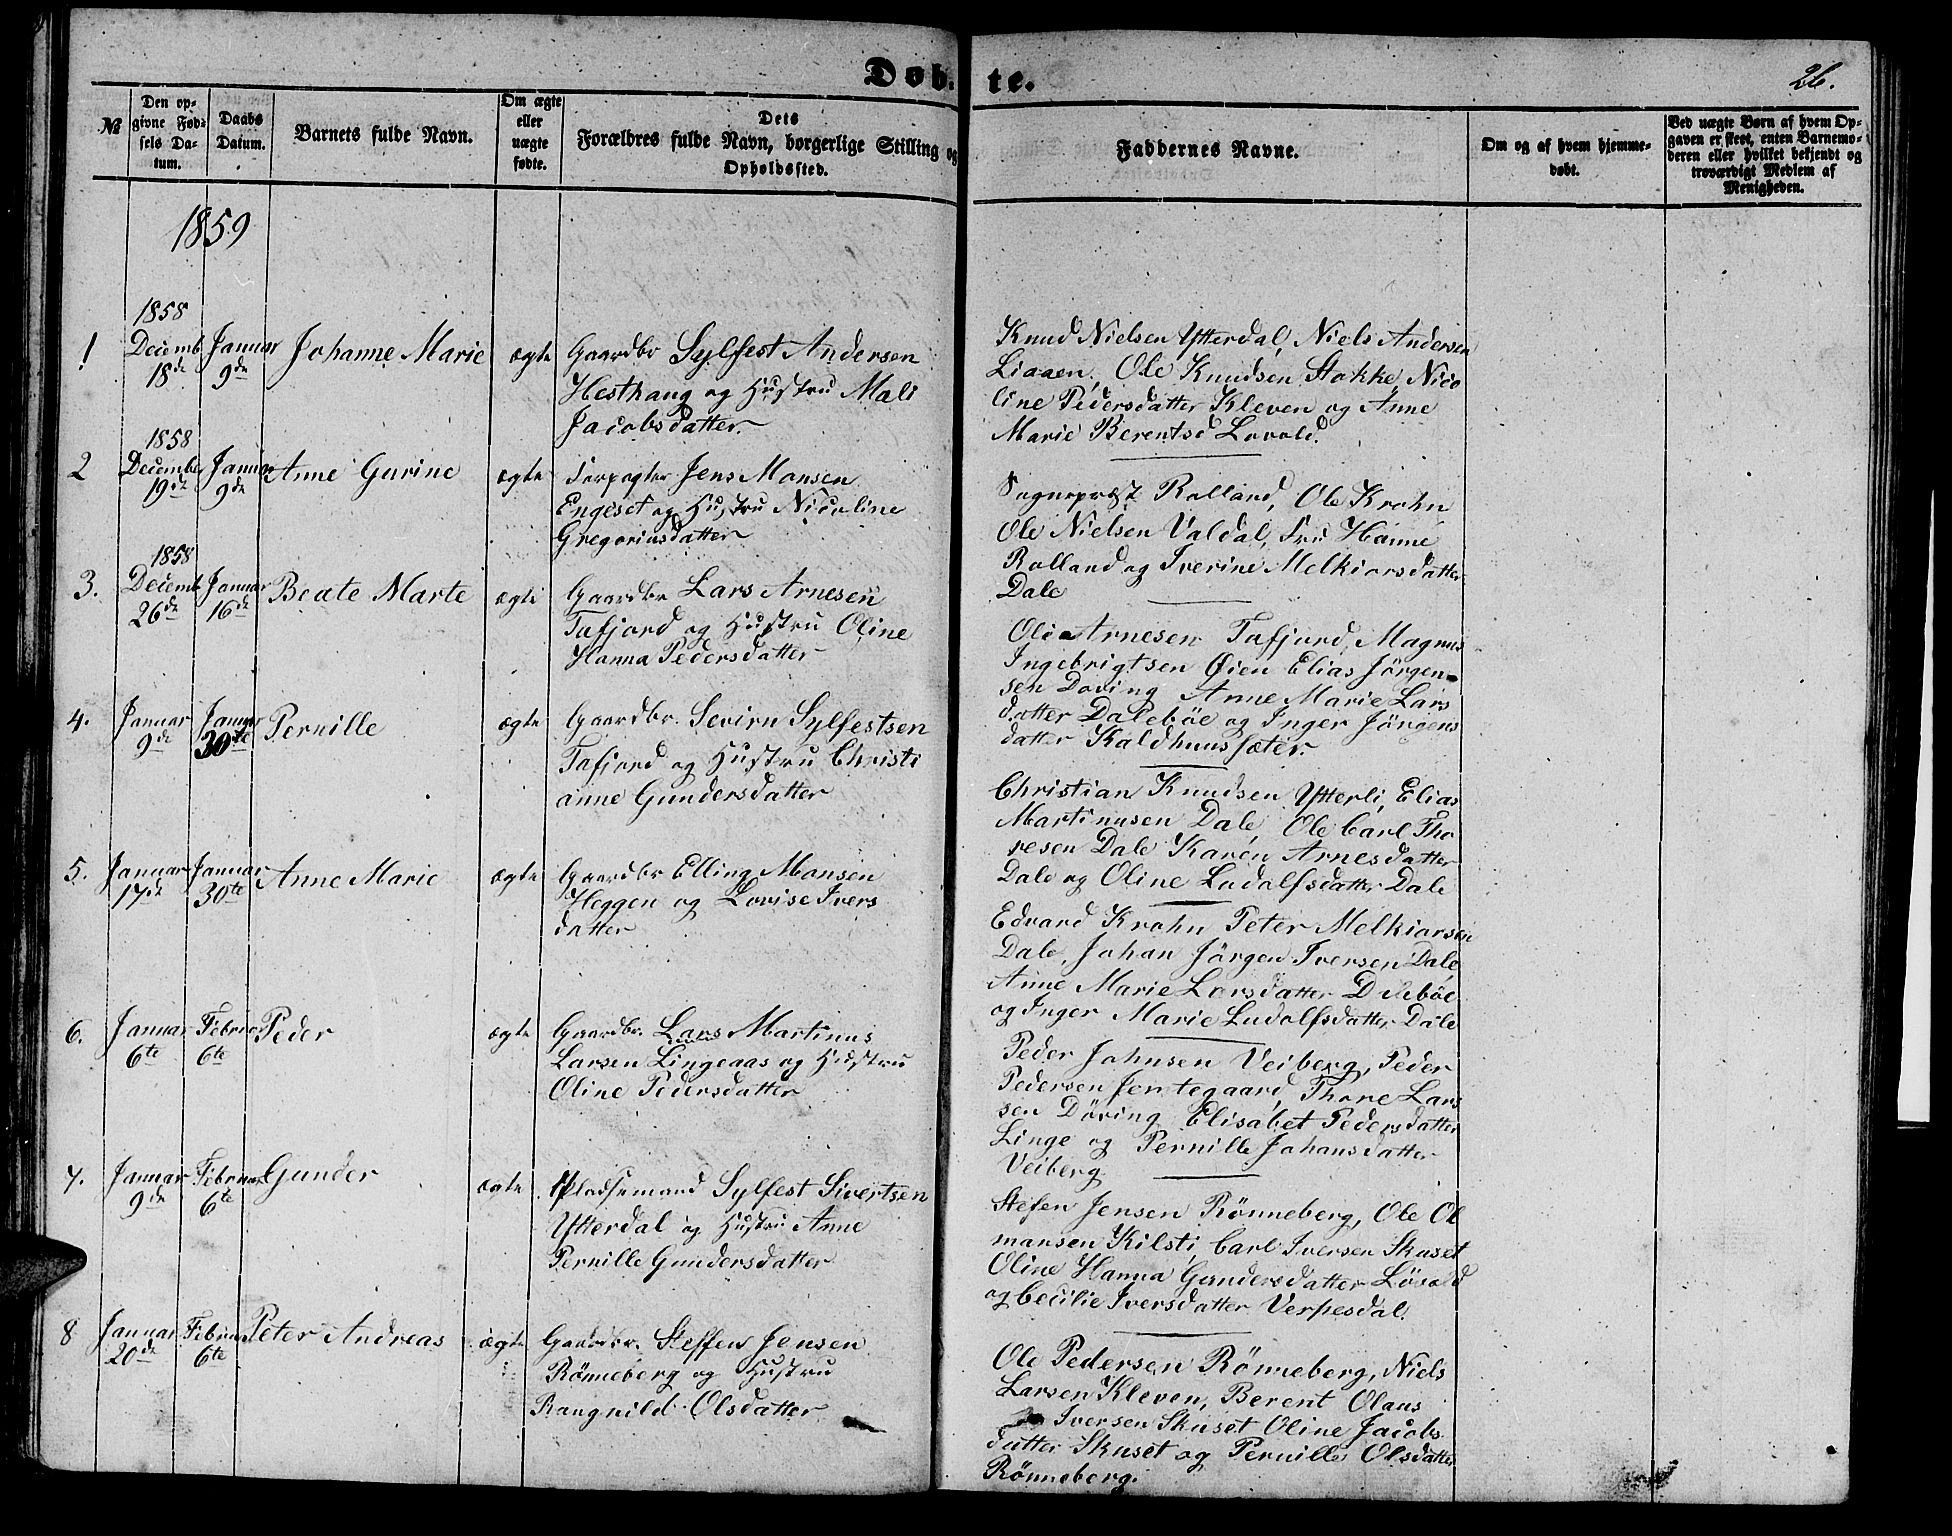 Døb-
te.
26.
№
Den op-
givne Fød-
sels Da-
tum.
Daabs
Datum.
Barnets fulde Navn.
Om ægte
eller
uægte
fødte.
Dets
Forældres fulde Navn, borgerlige Stilling og
Opholdssted.
Faddernes Navne.
Om og af hvem hjemme-
døbt.
Ved uægte Børn af hvem Op-
gaven er skeet, enten Barnemo-
deren eller hvilket bekjendt og
troværdigt Medlem af
Menigheden.
1859
1858
1 Decemb 18de Januar 9de Johanne Marie ægte Gaardbr Sylfest Andersen
Hestkang og Hustru Mali
Jacobsdatter.
Knud Nielsen Ytterdal, Niels Andersen
Liaaen, Ole Knudsen Stokke, Nico
line Pedersdatter Kleven og Anne
Marie Berentsd Lovold.
1858
2 December 19de Januar 9de Anne Gurine ægte Forpagter Jens Monsen
Engeset og Hustru Nicoline
Gregoriusdatter
Sognepræst Rolland, Ole Krohn
Ole Nielsen Valdal, Fru Hanne
Rolland og Iverine Melkiorsdatter
Dale
1858
3. Decemb 26de Januar 16de Beate Marte ægte Gaardbr Lars Arnesen
Tafjord og Hustru Oline
Hanna Pedersdatter
Ole Arnesen Tafjord, Magnus
Ingebrigtsen Øien Elias Jörgen-
sen Döving Anne Marie Lars
datter Daleböe og Inger Jörgens
datter Kaldhuussæter.
4. Januar 9de Januar 30te Pernille ægte Gaardbr. Sevirn Sylfestsen
Tafjord og Hustru Christi
anne Gundersdatter
Christian Knudsen Ytterli, Elias
Martinusen Dale, Ole Carl Tho
resen Dale Karen Arnesdatter
Dale og Oline Ludolfsdatter Dale
5. Januar 17de Januar 30te Anne Marie ægte Gaardbr Elling Monsen
Heggen og Lovise Ivers
datter
Edvard Krohn, Peter Melkiorsen
Dale, Johan Jörgen Iversen Dale,
Anne Marie Larsdatter Daleböe
og Inger Marie Ludolfsdatter Dale
6. Januar 6te Februar 6te Peder ægte Gaardbr. Lars Martinus
Larsen Lingeaas og Hustru
Oline Pedersdatter
Peder Johnsen Veiberg, Peder
Pedersen Jentegaard, Thore Lars
sen Döving Elisabet Pedersdatter
Linge og Pernille Johansdatter
Veiberg
7. Januar 9de Februar 6te Gunder ægte Pladsemand Sylfest Sivertsen
Ytterdal og Hustru Anne
Pernille Gundersdatter
Stefen Jensen Rönneberg, Ole Ol
mansen Kilsti, Carl Iversen Skuset
Oline Hanna Gundersdatter Lövold
og Cecilie Iversdatter Verpesdal.
8 Januar 20de Februar 6te Peter Andreas ægte Gaardbr. Steffen Jensen
Rönneberg og Hustru
Rangnild Olsdatter
Ole Pedersen Rönneberg, Niels
Larsen Kleven, Berent Olaus
Iversen Skuset Oline Jacobs
datter Skuset og Pernille Olsdatter
Rönneberg.